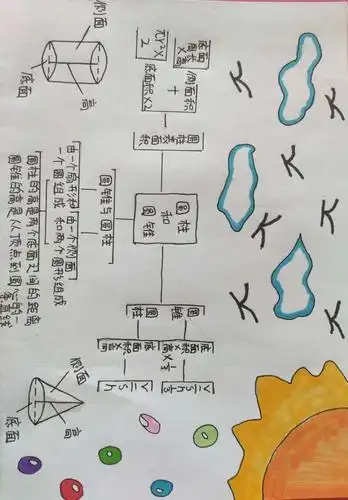 圆柱
和
圆锥
圆柱表面积
侧面积
+
底面积×2
底面周长×高
πr²×2
圆锥
圆柱
底面积×高×⅓
底面积×高
V=Sh⅓
V=Sh
圆锥与圆柱
由一个扇形和一个圆组成
由一个侧面和两个圆形组成
圆柱的高是两个底面之间的距离
圆锥的高是从顶点到圆心的一条直线
侧面
高
底面
侧面
高
底面